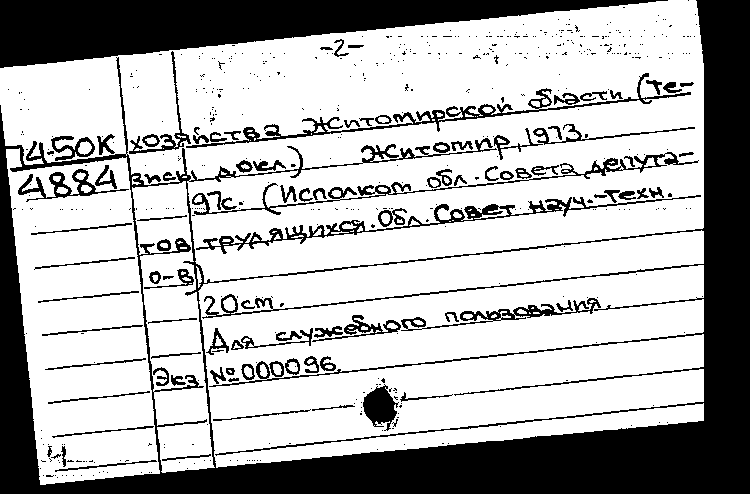 -2-
74-50К хозяйства Житомирской области. (Те-
4884 зисы докл.) Житомир, 1973.
97с. (Исполком обл. Совета депута-
тов трудящихся. Обл. Совет науч.-техн.
о-в).
20 cm.
Для служебного пользования.
Экз №000096.
4